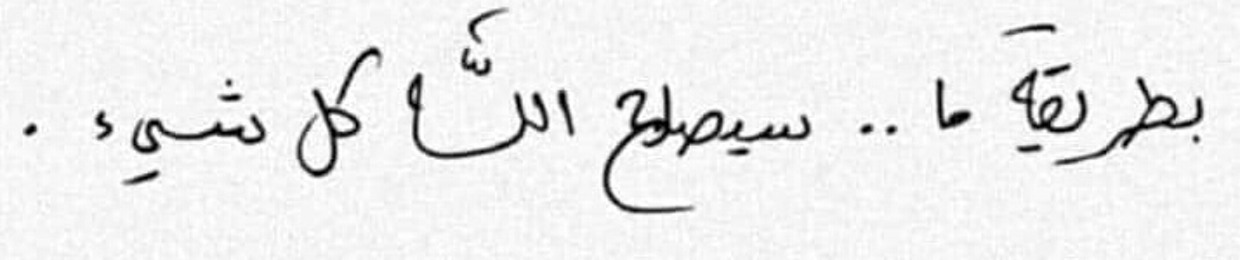 بطريقةٍ ما .. سيصلح اللَّه كل شيء .